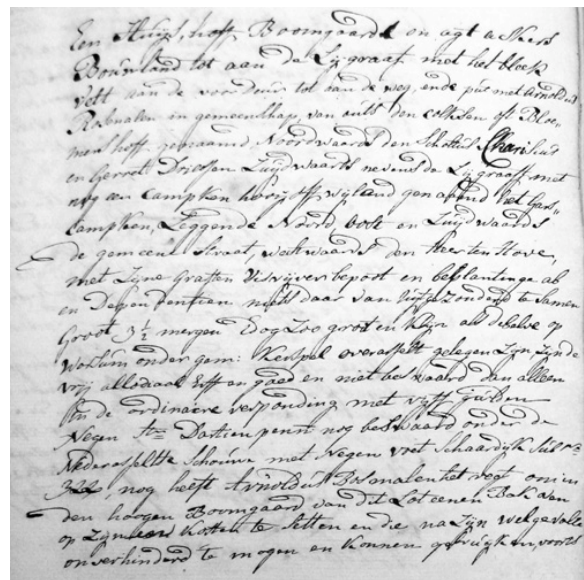 Een Huijs, hoff Boomgaard en agt ackers
Bouwland tot aan de Zijgraaf met het block
Velt aan de voordeur tot aan de weg, ende put met Arnoldus
Rosmalen in gemeenschap, van outs den colksen oft Bloe-
mens hoff genaamd Noordwaards den Scholtus Charislius
en Gerrit Driessen Zuijdwaards nevens de Zijgraaff met
nog een campken wijland genaamd het Gars-
campken, Leggende Noord, oost en Zuijdwaards
de gemeene Straat, westwaards den Heer ten Hove,
met Zijne Graften Visvijver bepoot en beplantinge ab
en Dependentien niets daar van uijtgezondert te Samen
Groot 3 1/2 mergen Dog Zoo groot en klijn als deselve op
onder gem: Kerspel overasselt gelegen Zijn Zijnde
vrij allodiaal Erff en goed en niet beswaard dan alleen
in de ordinaire verponding met vijff gulden
Negen st: Dartien penn: nog beswaard onder de
Nederasseltse Schouwe met Negen voet Schaardijk Sub No:
322, nog heeft Arnoldus Rosmalen het regt om in
den hoogen Boomgaard van dit Lot eenen Bak van
op Zijn kosten te Setten en die na Zijn welgevalle
onverhinderd te mogen en konnen gebruijken, voorts